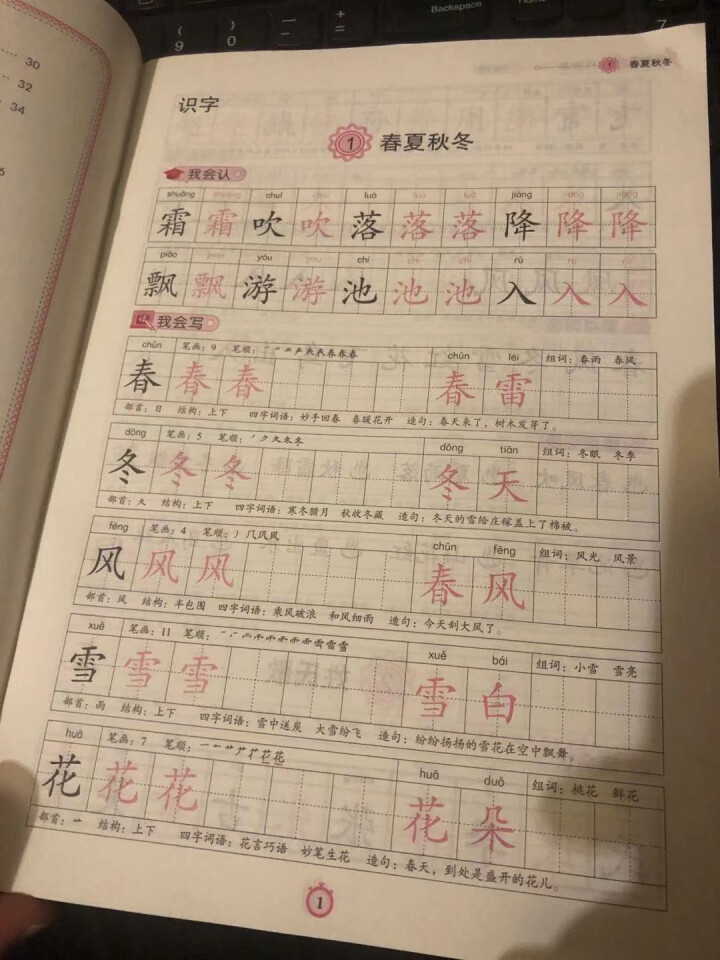 30
32
34
( 9
) 0
Backspace
Home
7
1 春夏秋冬
识字
1 春夏秋冬
我会认
shuāng shuāng chuī chuī luò luò luò jiàng jiàng jiàng
霜 霜 吹 吹 落 落 落 降 降 降
piāo piāo yóu yóu chí chí chí rù rù rù
飘 飘 游 游 池 池 池 入 入 入
我会写
chūn 笔画：9 笔顺： chūn léi 组词：春雨 春风
春 春 春 春 雷
部首：日 结构：上下 四字词语：妙手回春 春暖花开 造句：春天来了，树木发芽了。
dōng 笔画：5 笔顺：丿 ク 夂 冬 冬 dōng tiān 组词：冬眠 冬季
冬 冬 冬 冬 天
部首：夂 结构：上下 四字词语：寒冬腊月 秋收冬藏 造句：冬天的雪给庄稼盖上了棉被。
fēng 笔画：4 笔顺：丿 几 风 风 chūn fēng 组词：风光 风景
风 风 风 春 风
部首：风 结构：半包围 四字词语：乘风破浪 和风细雨 造句：今天刮大风了。
xuě 笔画：11 笔顺： xuě bái 组词：小雪 雪亮
雪 雪 雪 雪 白
部首：雨 结构：上下 四字词语：雪中送炭 大雪纷飞 造句：纷纷扬扬的雪花在空中飘舞。
huā 笔画：7 笔顺： huā duǒ 组词：桃花 鲜花
花 花 花 花 朵
部首：艹 结构：上下 四字词语：花言巧语 妙笔生花 造句：春天，到处是盛开的花儿。
1